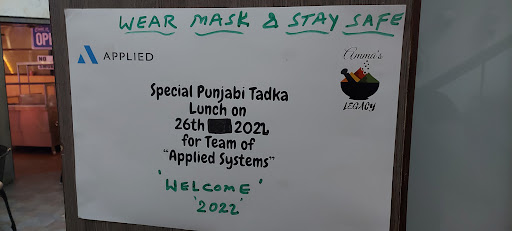 WEAR MASK & STAY SAFE
APPLIED
Amma's
LEGACY
Special Punjabi Tadka
Lunch on
26th 2022
for Team of
"Applied Systems"
'WELCOME'
'2022'
OP